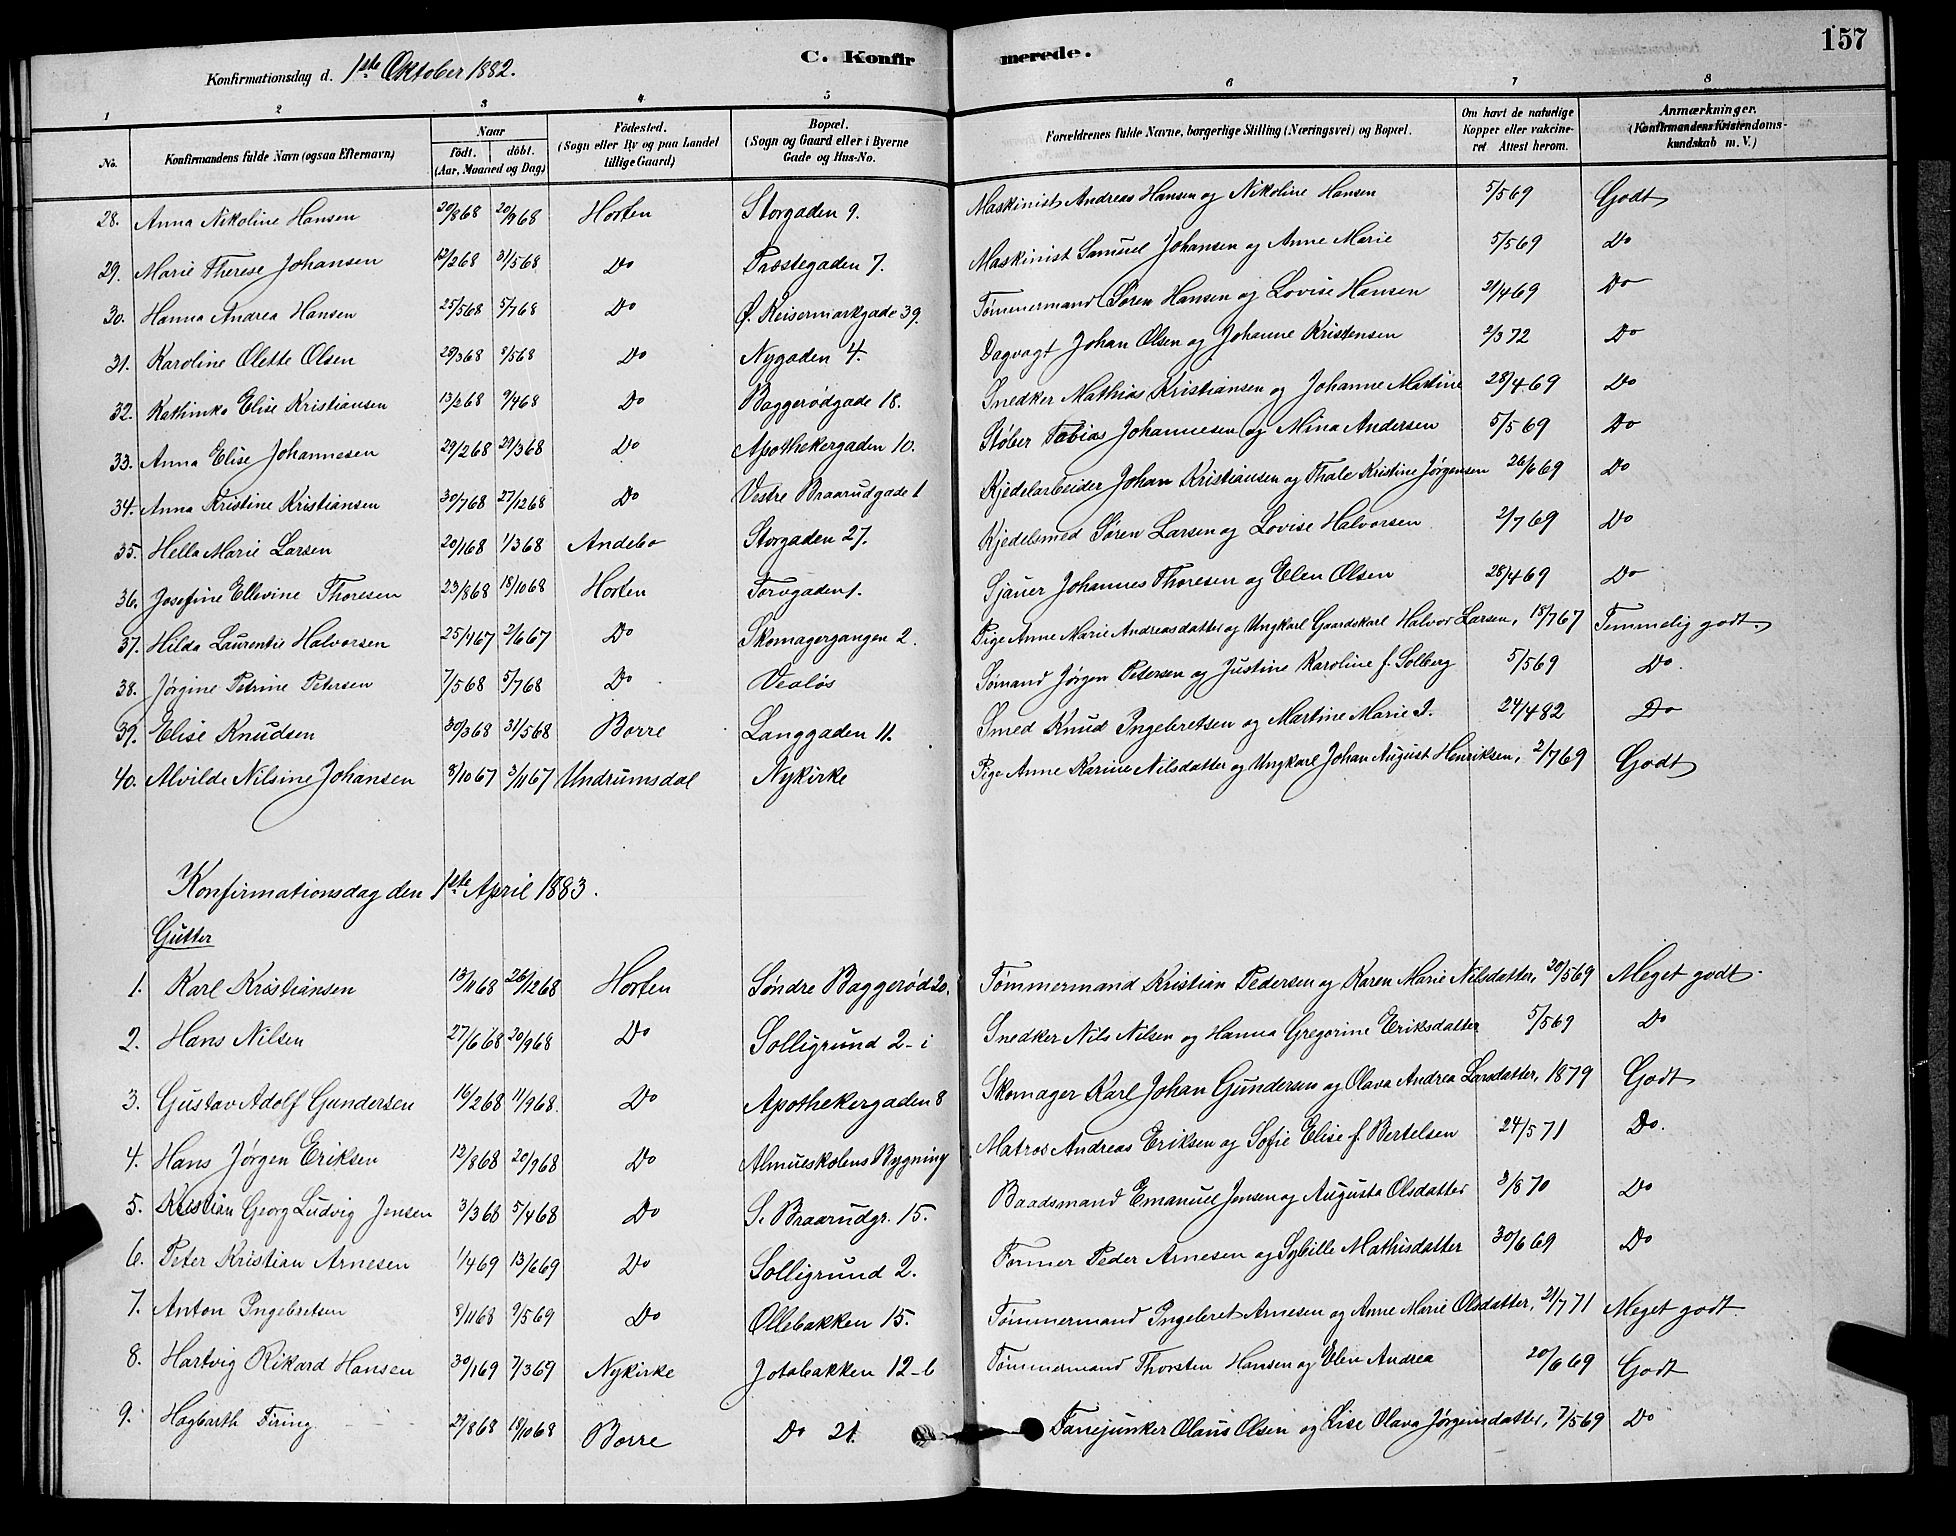 Konfirmationsdag d. 1ste Oktober 1882.
C. Konfirmerede.
157
1 2 3 4 5 6 7 8
No.
Konfirmandens fulde Navn (ogsaa Efternavn)
Naar
født. døbt.
(Aar, Maaned og Dag)
Fødested.
(Sogn eller By og paa Landet
tillige Gaard)
Bopæl.
(Sogn og Gaard eller i Byerne
Gade og Hus-No.
Forældrenes fulde Navne, borgerlige Stilling (Næringsvei) og Bopæl.
Om havt de naturlige
Kopper eller vakcine-
ret Attest herom.
Anmærkninger.
(Konfirmandens Kristendoms-
kundskab m. V.)
28. Anna Nikoline Hansen 20/868 20/968 Horten Storgaden 9. Maskinist Andreas Hansen og Nikoline Hansen 5/569 Godt
29. Marie Therese Johansen 12/268 31/568 Do Præstegaden 7. Maskinist Samuel Johansen og Anne Marie 5/569 Do
30. Hanna Andrea Hansen 25/568 5/768 Do Ø. Keisermarkgade 39. Tømmermand Søren Hansen og Lovise Hansen 21/469 Do
31. Karoline Olette Olsen 29/368 3/568 Do Nygaden 4. Dagvagt Johan Olsen og Johanne Kristensen 2/372 Do
32. Kathinka Elise Kristiansen 13/268 9/468 Do Baggerødgade 18. Snedker Mathias Kristiansen og Johanne Martine 28/469 Do
33. Anna Elise Johannesen 29/268 29/368 Do Apothekergaden 10. Støber Tobias Johannesen og Mina Andersen 5/569 Do
34. Anna Kristine Kristiansen 30/768 27/1268 Do Vestre Braarudgade 1 Kjedelarbeider Johan Kristiansen og Thale Kristine Jørgensen 26/669 Do
35. Hella Marie Larsen 20/168 1/368 Andebo Storgaden 27. Kjedelsmed Søren Larsen og Lovise Halvorsen 2/769 Do
36. Josefine Ellevine Thoresen 23/868 18/1068 Horten Torvgaden 1. Sjauer Johannes Thoresen og Elen Olsen 28/469 Do
37. Hilda Laurentie Halvorsen 25/467 2/667 Do Skomagergangen 2. Pige Anne Marie Andreasdatter og Ungkarl Gaardskarl Halvor Larsen, 18/767 Temmelig godt.
38. Jørgine Petrine Petersen 7/568 5/768 Do Vealøs Sømand Jørgen Petersen og Justine Karoline f. Solberg 5/569 Do.
39. Elise Knudsen 30/368 31/568 Borre Langgaden 11. Smed Knud Ingebretsen og Martine Marie I. 24/482 Do
40. Alvilde Nilsine Johansen 8/1067 3/1167 Undrumsdal Nykirke Pige Anne Karine Nilsdatter og Ungkarl Johan August Henriksen, 2/769 Godt
Konfirmationsdag den 1ste April 1883.
Gutter
1. Karl Kristiansen 13/1168 26/1268 Horten Søndre Baggerød 20. Tømmermand Kristian Pedersen og Karen Marie Nilsdatter, 20/569 Meget godt.
2. Hans Nilsen 27/668 20/968 Do Solligrund 2-i Snedker Nils Nilsen og Hanna Gregorine Eriksdatter 5/569 Do
3. Gustav Adolf Gundersen 16/268 11/968. Do Apothekergaden 8 Skomager Karl Johan Gundersen og Olava Andrea Larsdatter, 1879 Godt
4. Hans Jørgen Eriksen 12/868 20/968 Do Almueskolens Bygning Matros Andreas Eriksen og Sofie Elise f. Bertelsen 24/571 Do.
5. Kristian Georg Ludvig Jensen 3/368 5/468 Do S. Braarudgr. 15. Baadsmand Emanuel Jensen og Augusta Olsdatter 3/870 Do
6. Peter Kristian Arnesen 1/469 13/669 Do Solligrund 2. Former Peder Arnesen og Sybille Mathisdatter 30/669 Do
7. Anton Ingebretsen 8/1168 9/569 Do Ollebakken 15. Tømmermand Ingebret Arnesen og Anne Marie Olsdatter, 21/771 Meget godt
8. Hartvig Rikard Hansen 30/169 7/369 Nykirke Jotabakken 12-b Tømmermand Thorsten Hansen og Elen Andrea 20/669 Godt
9. Hagbarth Firing 29/868 18/1068 Borre Do 21. Fanejunker Olaus Olsen og Lise Olava Jørgensdatter, 7/569 Do